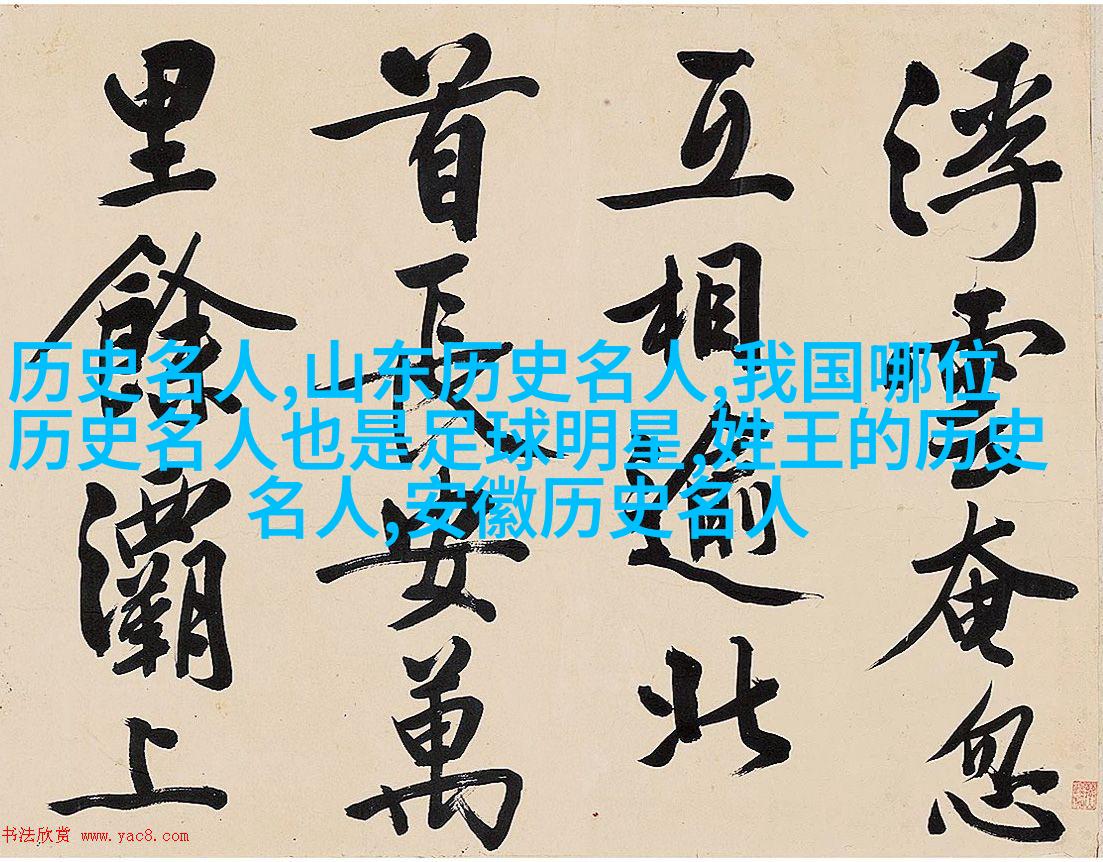 浮雲奄忽
互相逾北
首長安萬
里餘灞上
历史名人,山东历史名人,我国哪位
历史名人也是足球明星,姓王的历史
名人,安徽历史名人
书法欣赏 www.yac8.com